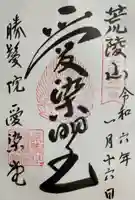 荒陵山
令和六年
一月十六日
愛染明王
勝鬘院
愛染堂